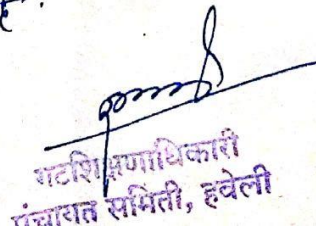 गटशिक्षणाधिकारी
पंचायत समिती, हवेली